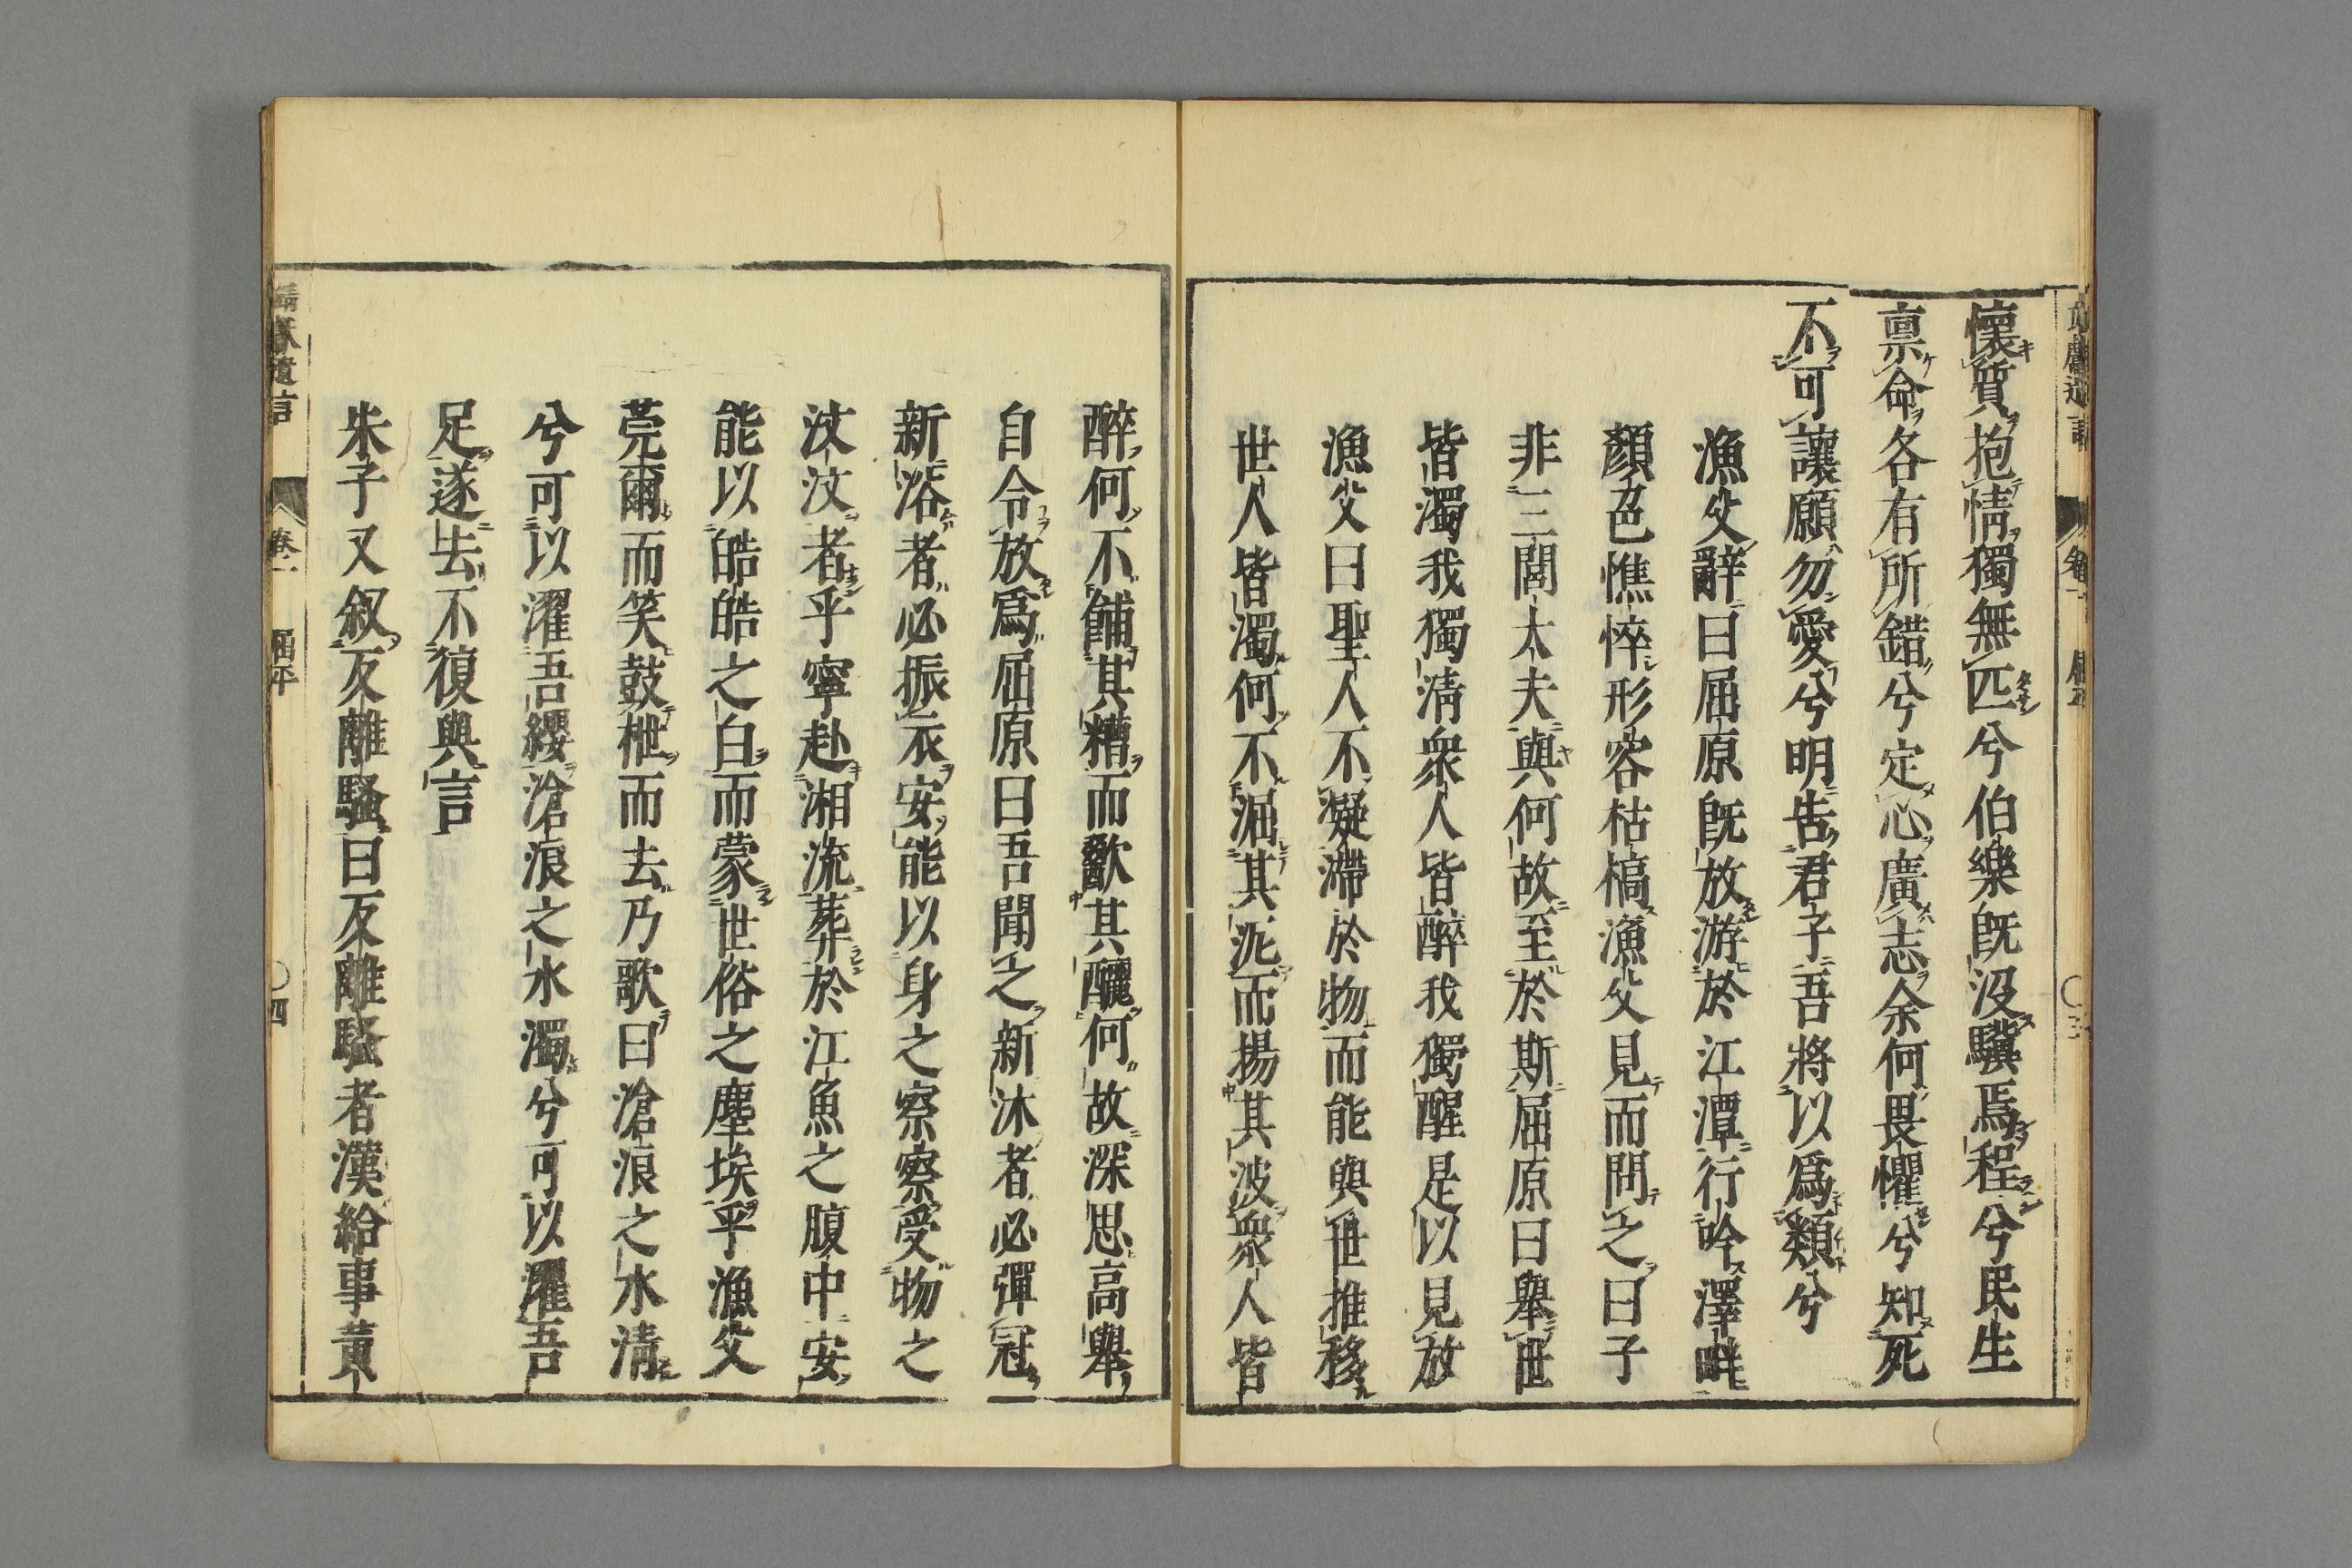 懷質抱情獨無匹兮伯樂既沒驥焉程兮民生
禀命各有所錯兮定心廣志余何畏懼兮知死
不可讓願勿愛兮明告君子吾將以爲類兮
漁父辭曰屈原既放游於江潭行吟澤畔
顏色憔悴形容枯槁漁父見而問之曰子
非三閭太夫與何故至於斯屈原曰舉世
皆濁我獨淸衆人皆醉我獨醒是以見放
漁父曰聖人不凝滯於物而能與世推移
世人皆濁何不淈其泥而揚其波衆人皆
醉何不餔其糟而歠其釃何故深思高舉
自令放爲屈原曰吾聞之新沐者必彈冠
新浴者必振衣安能以身之察察受物之
汶汶者乎寧赴湘流葬於江魚之腹中安
能以皓皓之白而蒙世俗之塵埃乎漁父
莞爾而笑鼓枻而去乃歌曰滄浪之水淸
兮可以濯吾纓滄浪之水濁兮可以濯吾
足遂去不復與言
朱子又叙反離騷曰反離騷者漢給事黃
靖獻遺言 卷一 屈平 〇四